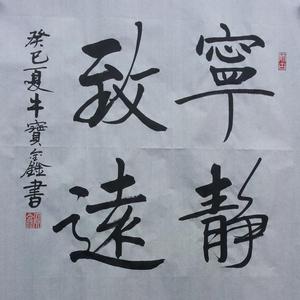 寧靜
致遠
癸巳夏牛寶鑫書